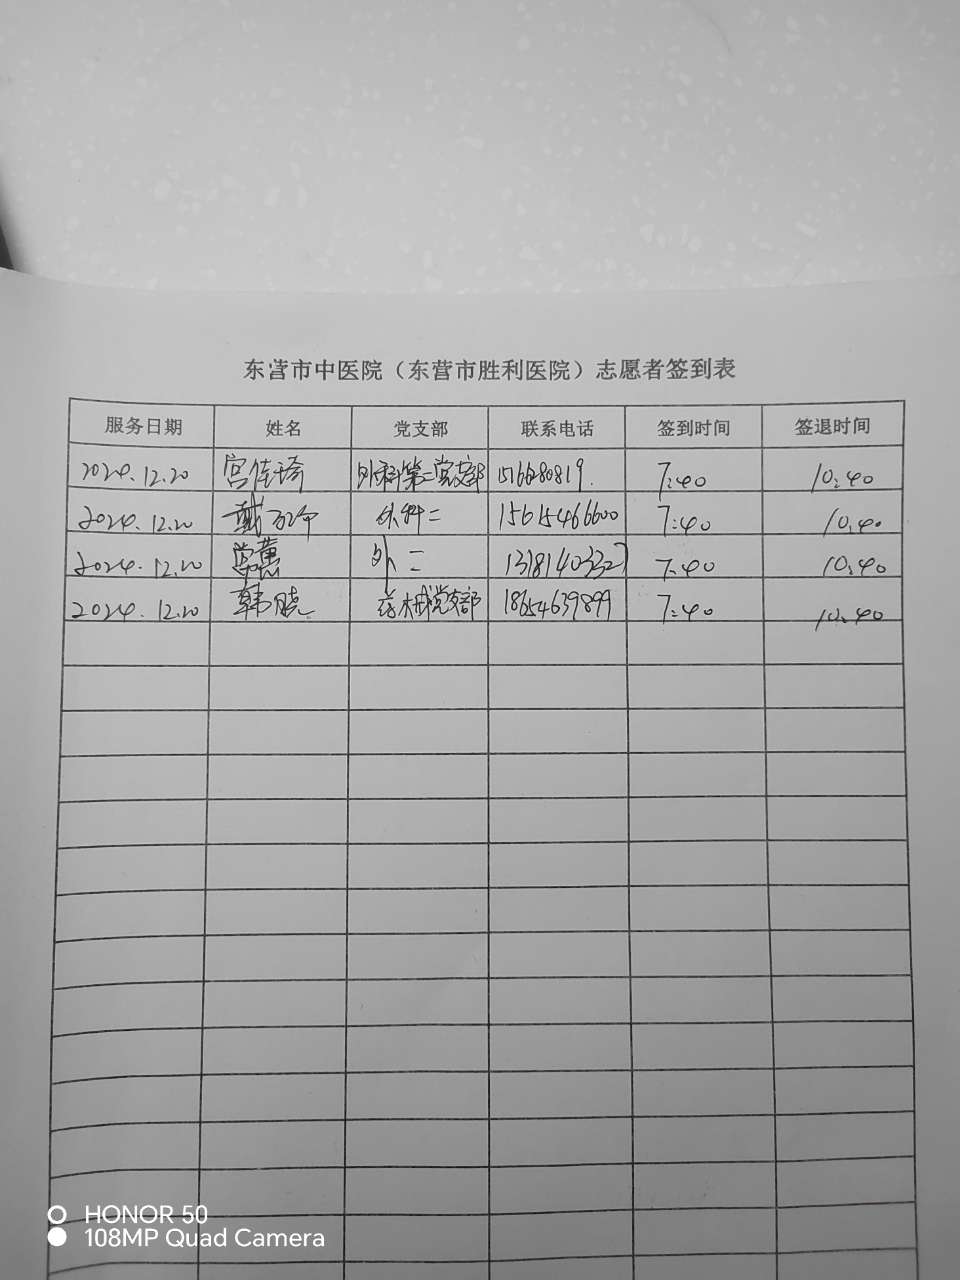 东营市中医院（东营市胜利医院）志愿者签到表
服务日期 姓名 党支部 联系电话 签到时间 签退时间
2024.12.20 宫佳琦 外科第二党支部 15166280819. 7:40 10:40
2024.12.20 戴 外科二 15615466600 7:40 10:40
2024.12.20 外二 13181403327 7:40 10:40
2024.12.20 韩晓 药械党支部 18654639899 7:40 10:40
HONOR 50
108MP Quad Camera